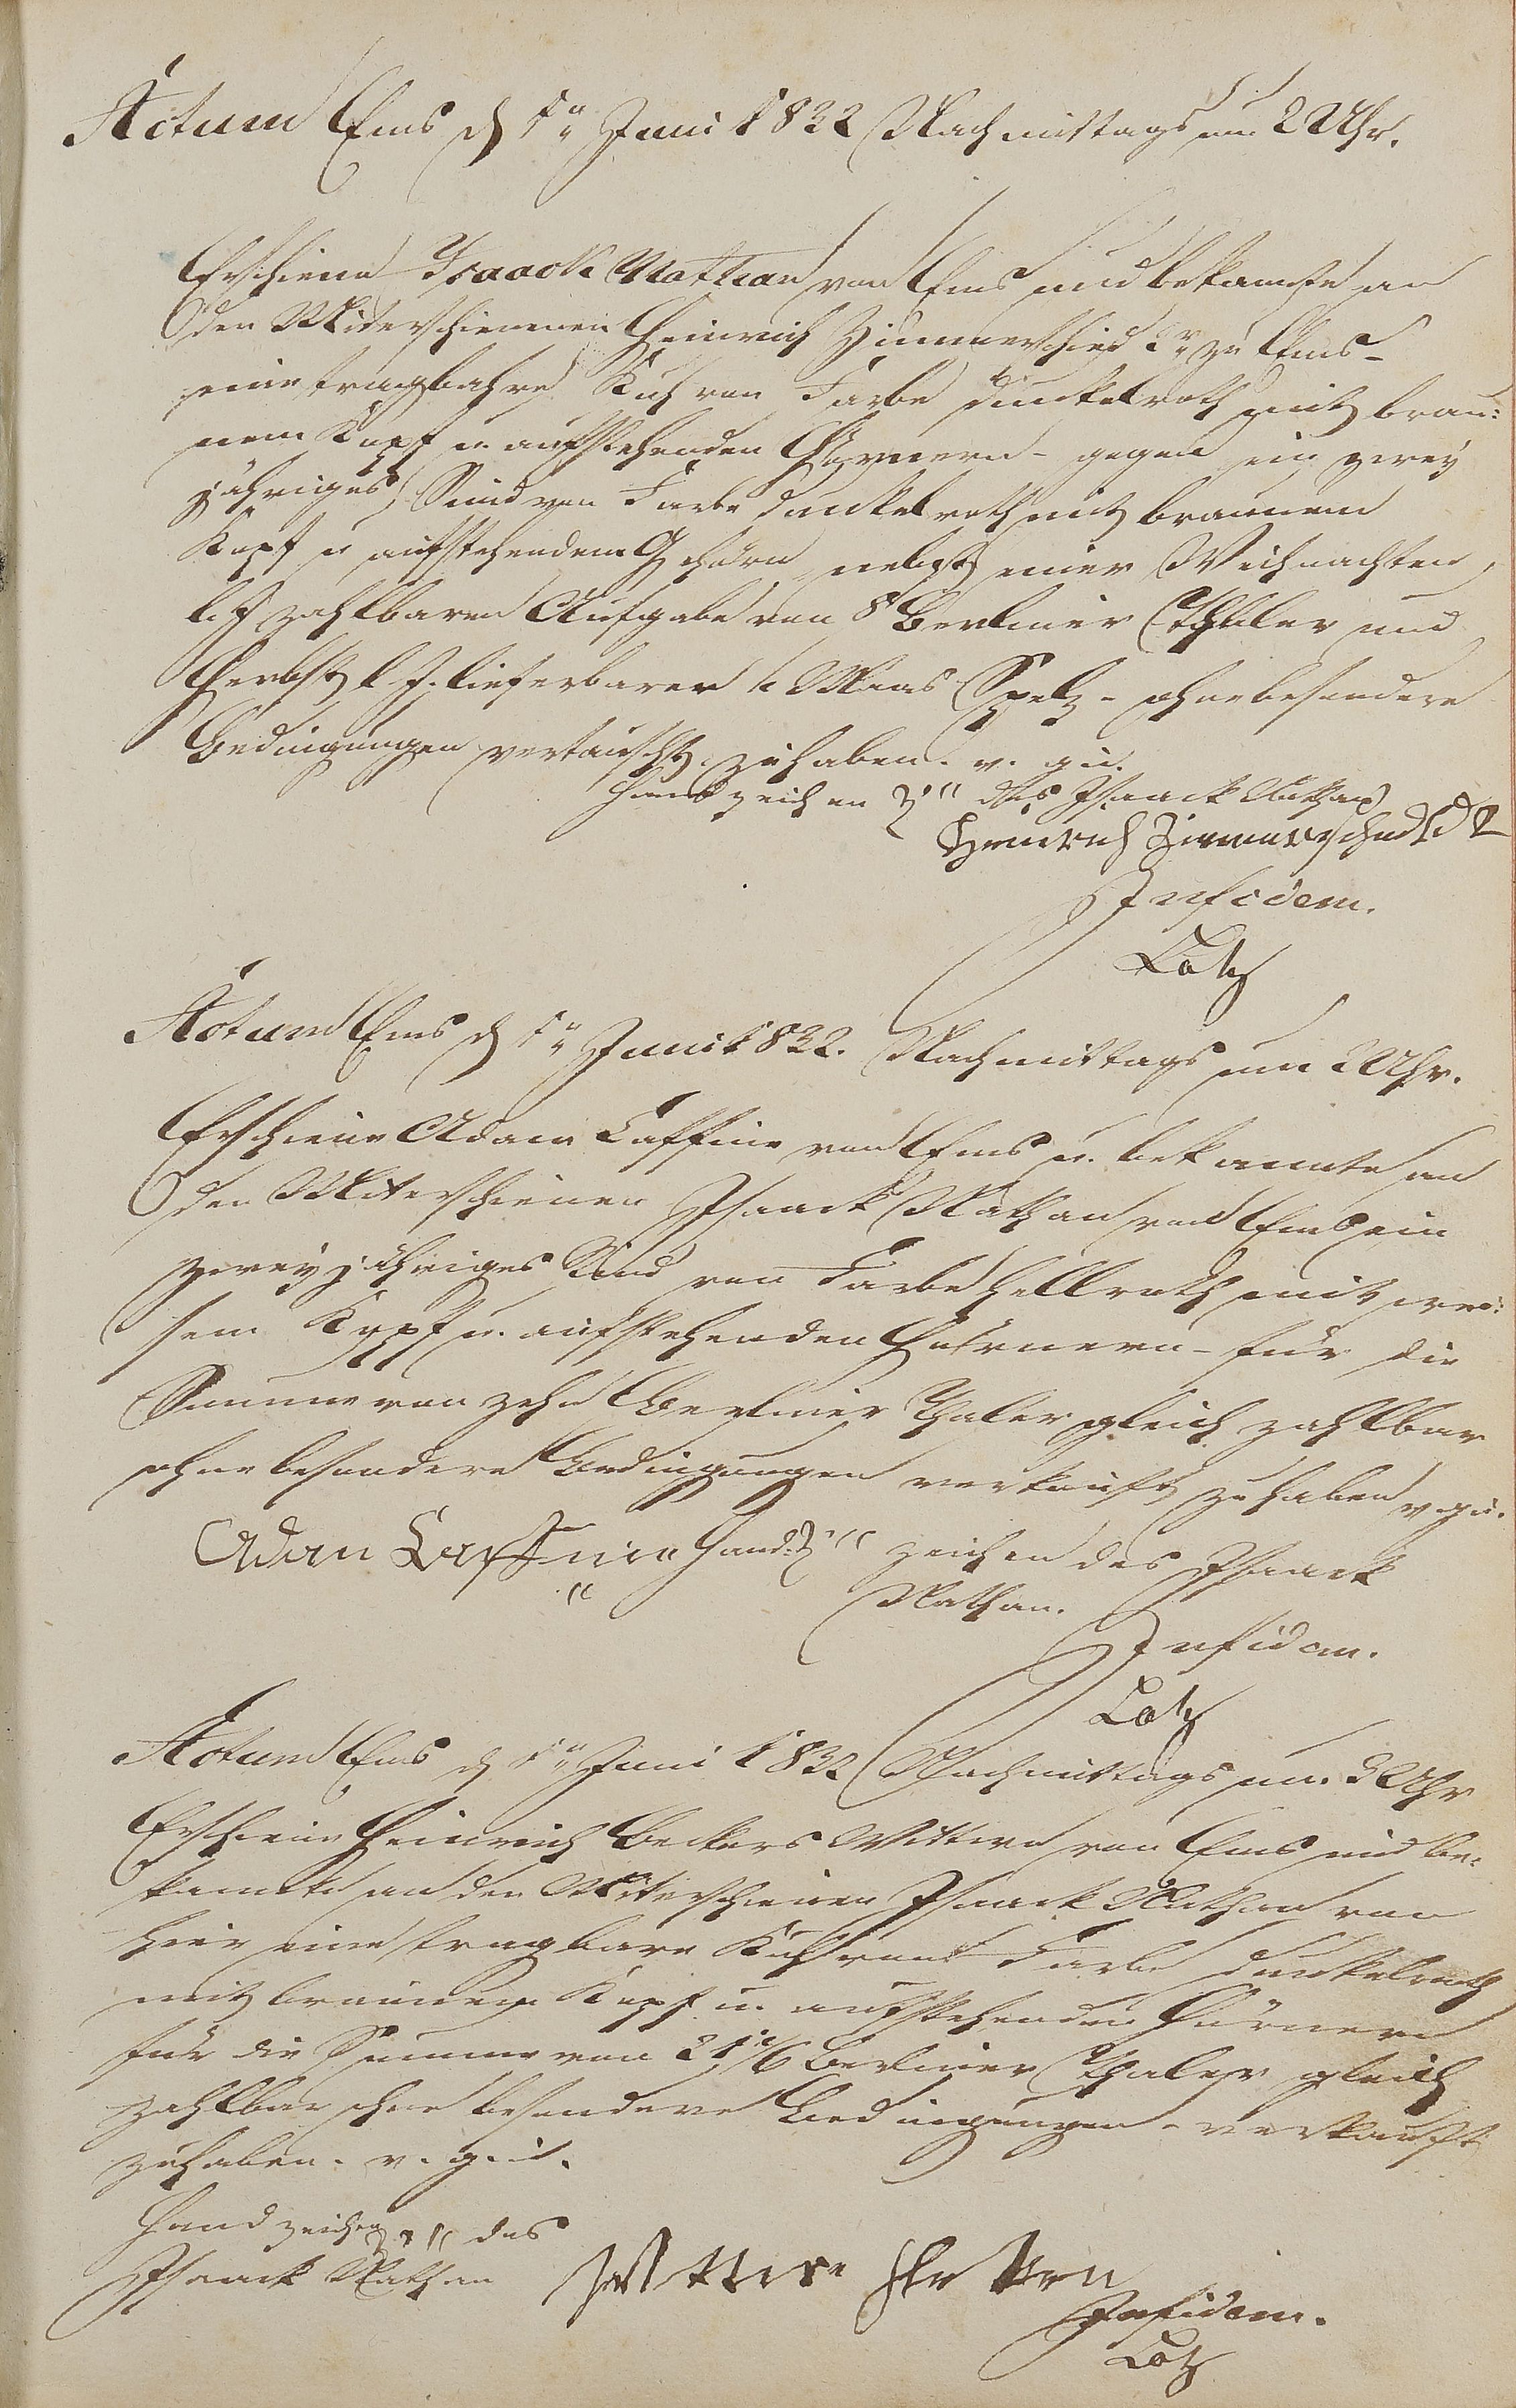 Actum Ems d 1n Juni 1832 Nachmittags um 2 Uhr.
Erschiene Isaack Nathan von Ems und bekannte an
den Miterschienenen Heinrich Zimmerschied 2r zu Ems -
eine tragbahre Kuh von Farbe dunkelroth mit brau:
nem Kopf u. aufstehenden Hörnern - gegen ein zwey
jähriges Rind von Farbe dunkelroth mit braunem
Kopf u aufstehendem Gehörn nebst einer Weihnachten
l. J zahlbaren Aufgabe von 8 Berliner Thaler und
Herbst l. J. lieferbarer Maas Spelz - ohne besondere
Bedingungen vertauscht zu haben. v. gu.
Handzeichen des Isaack Nathan
Heinrich Zimmerschied 2
In fidem.
Lotz
Actum Ems d 1n Juni 1832. Nachmittags um 2 Uhr.
Erschiene Adam Laffine von Ems u. bekannte an
den Miterschienen Isaack Nathan von Ems ein
zweyjähriges Rind von Farbe hellroth mit wei:
sem Kopf u. aufstehenden Hörnern - für die
Summe von zehn Berliner Thaler gleich zahlbar
ohne besondere Bedingungen verkauft zu haben v. gu.
Adam Laffine Hand zeichen des Isaack
Nathan.
In fidem.
Lotz
Actum Ems d 1n Juni 1832 Nachmittags um 3 Uhr
Erschiene Heinrich Beckers Wittwe von Ems und be:
kannte an den Miterschienen Isaack Nathan von
hier eine tragbare Kuh von Farbe dunkelroth
mit braunem Kopf u. aufstehenden Hörnern
für die Summe von 21 Berliner Thaler gleich
zahlbar ohne besondere Bedingungen - verkauft
zu haben. v. g. u.
Handzeichen des
Isaack Nathan
In fidem.
Lotz